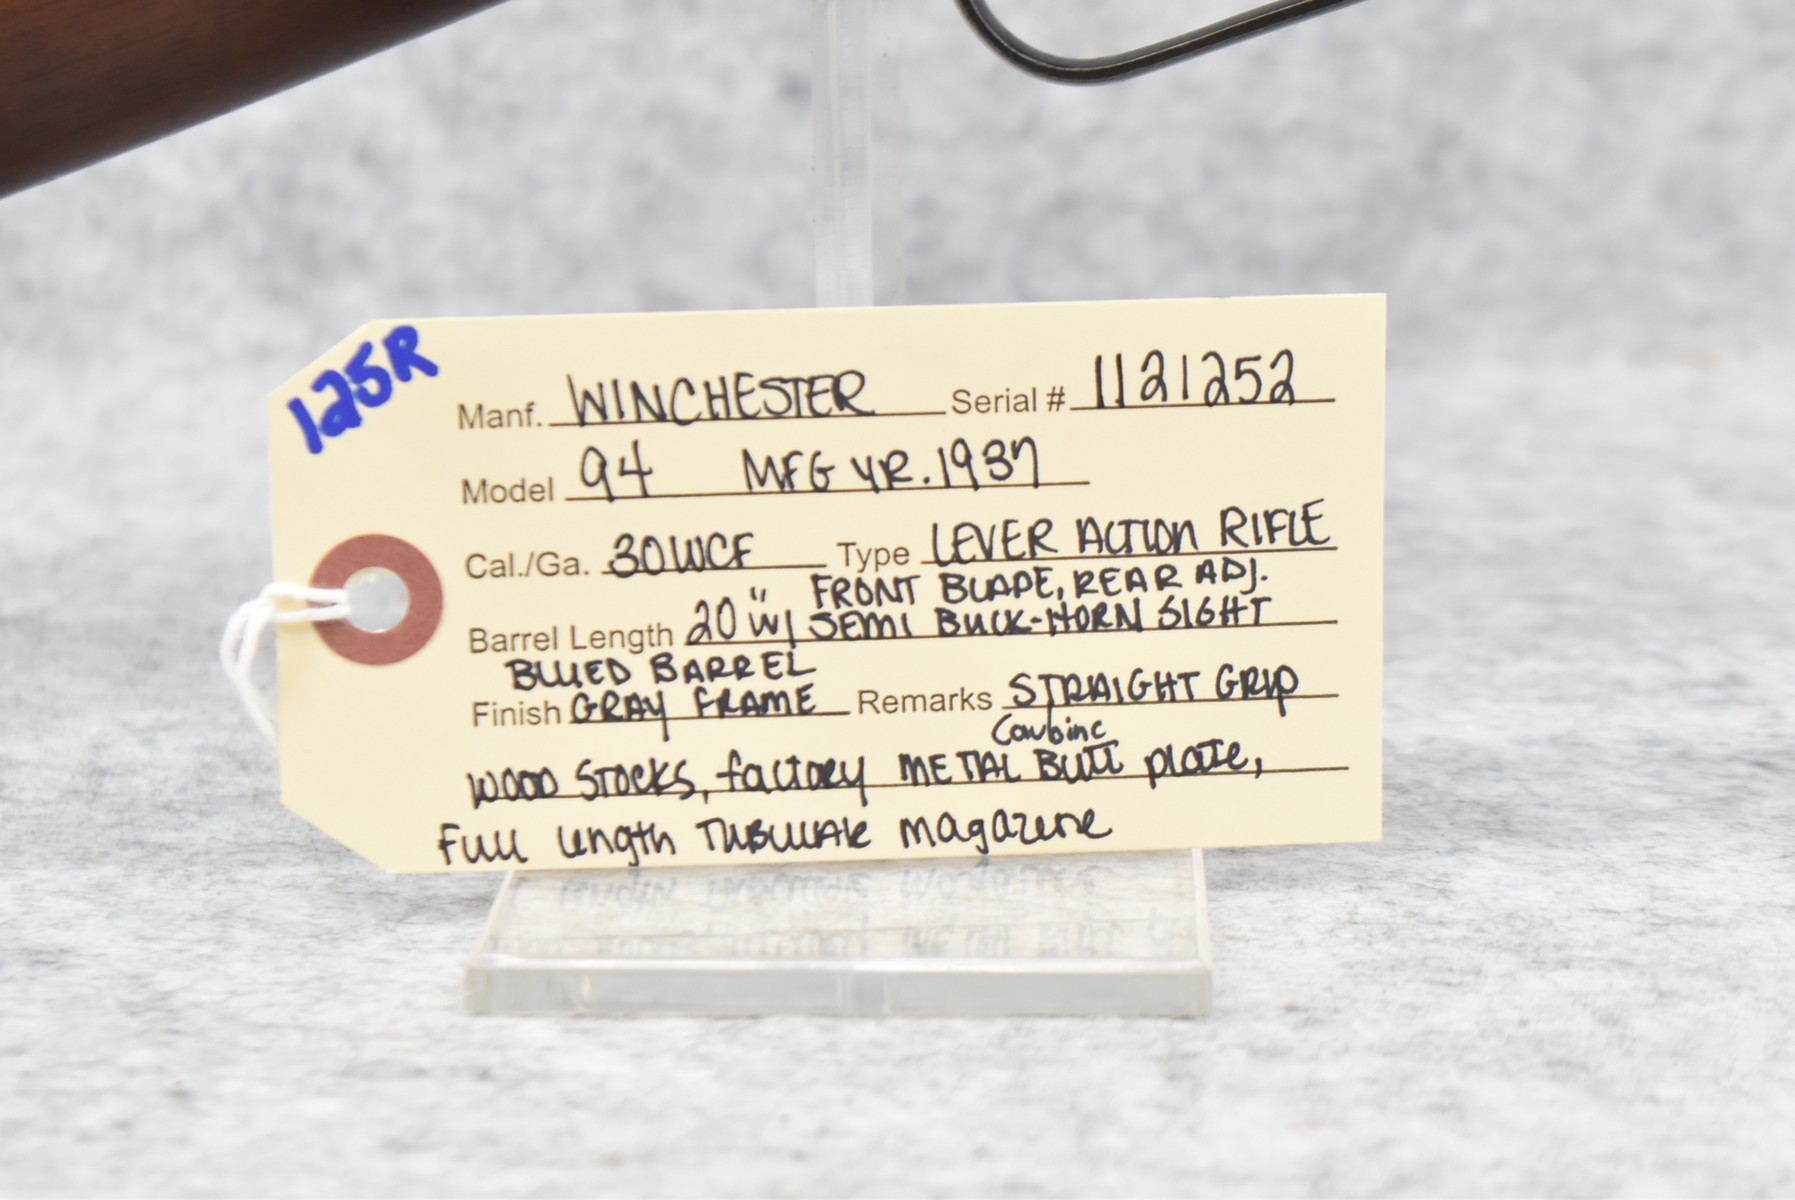 125R
Manf. WINCHESTER Serial # 1121252
Model 94 MFG YR. 1937
Cal./Ga. 30WCF Type LEVER ACTION RIFLE
FRONT BLADE, REAR ADJ.
Barrel Length 20" w/ SEMI BUCK-HORN SIGHT
BLUED BARREL
Finish GRAY FRAME Remarks STRAIGHT GRIP
Carbine
WOOD STOCKS, factory METAL BUTT plate,
Full length TUBULAR magazine